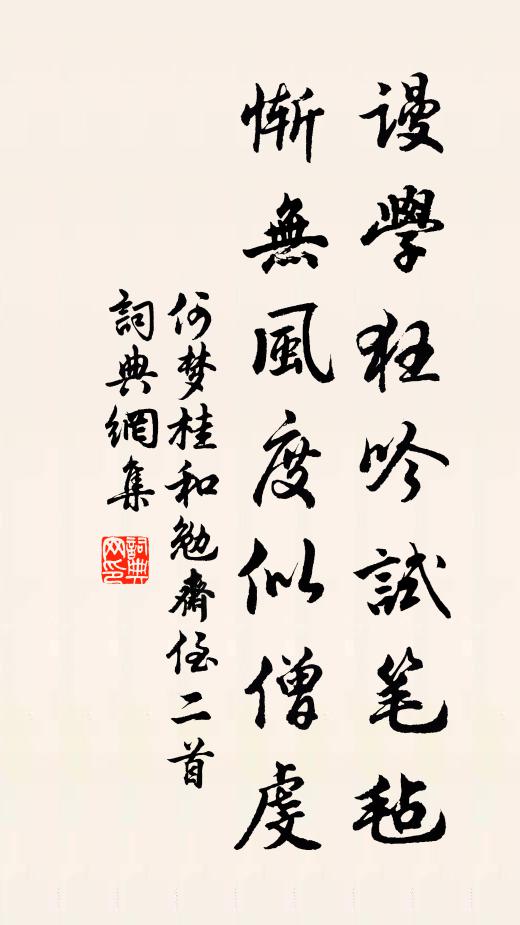 谩學狂吟試笔毡
惭無風度似僧虔
何梦桂和勉齋侄二首
詞典網集
詞典網印